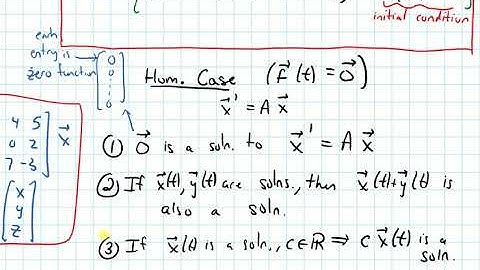 initial condition
each
entry is
zero function
0
0
0
Hom. Case (f⃗(t) = 0⃗)
x⃗' = A x⃗
① 0⃗ is a soln. to x⃗' = A x⃗
② If x⃗(t), y⃗(t) are solns., then x⃗(t)+y⃗(t) is
also a soln.
③ If x⃗(t) is a soln., c∈ℝ ⇒ c x⃗(t) is a
soln.
4 5
0 2 x⃗
7 -3
x
y
z